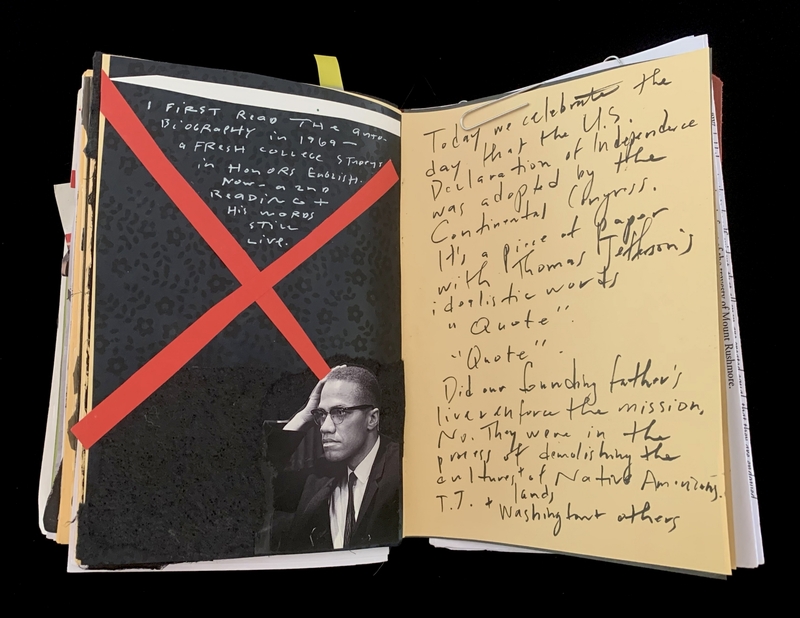 I FIRST READ THE AUTO-
BIOGRAPHY in 1969 —
a FRESH COLLEGE STUDENT
in HONORS ENGLISH.
NOW - a 2ND
READING +
HIS WORDS
STILL
LIVE.
Today we celebrate the
day that the U.S.
Declaration of Independence
was adopted by the
Continental Congress.
It's a piece of paper
with Thomas Jefferson's
idealistic words
"Quote".
"Quote".
Did our founding father's
live & enforce the mission.
No. They were in the
process of demolishing the
cultures + of Native Americans.
lands
T.J. + Washington + others
of Mount Rushmore.